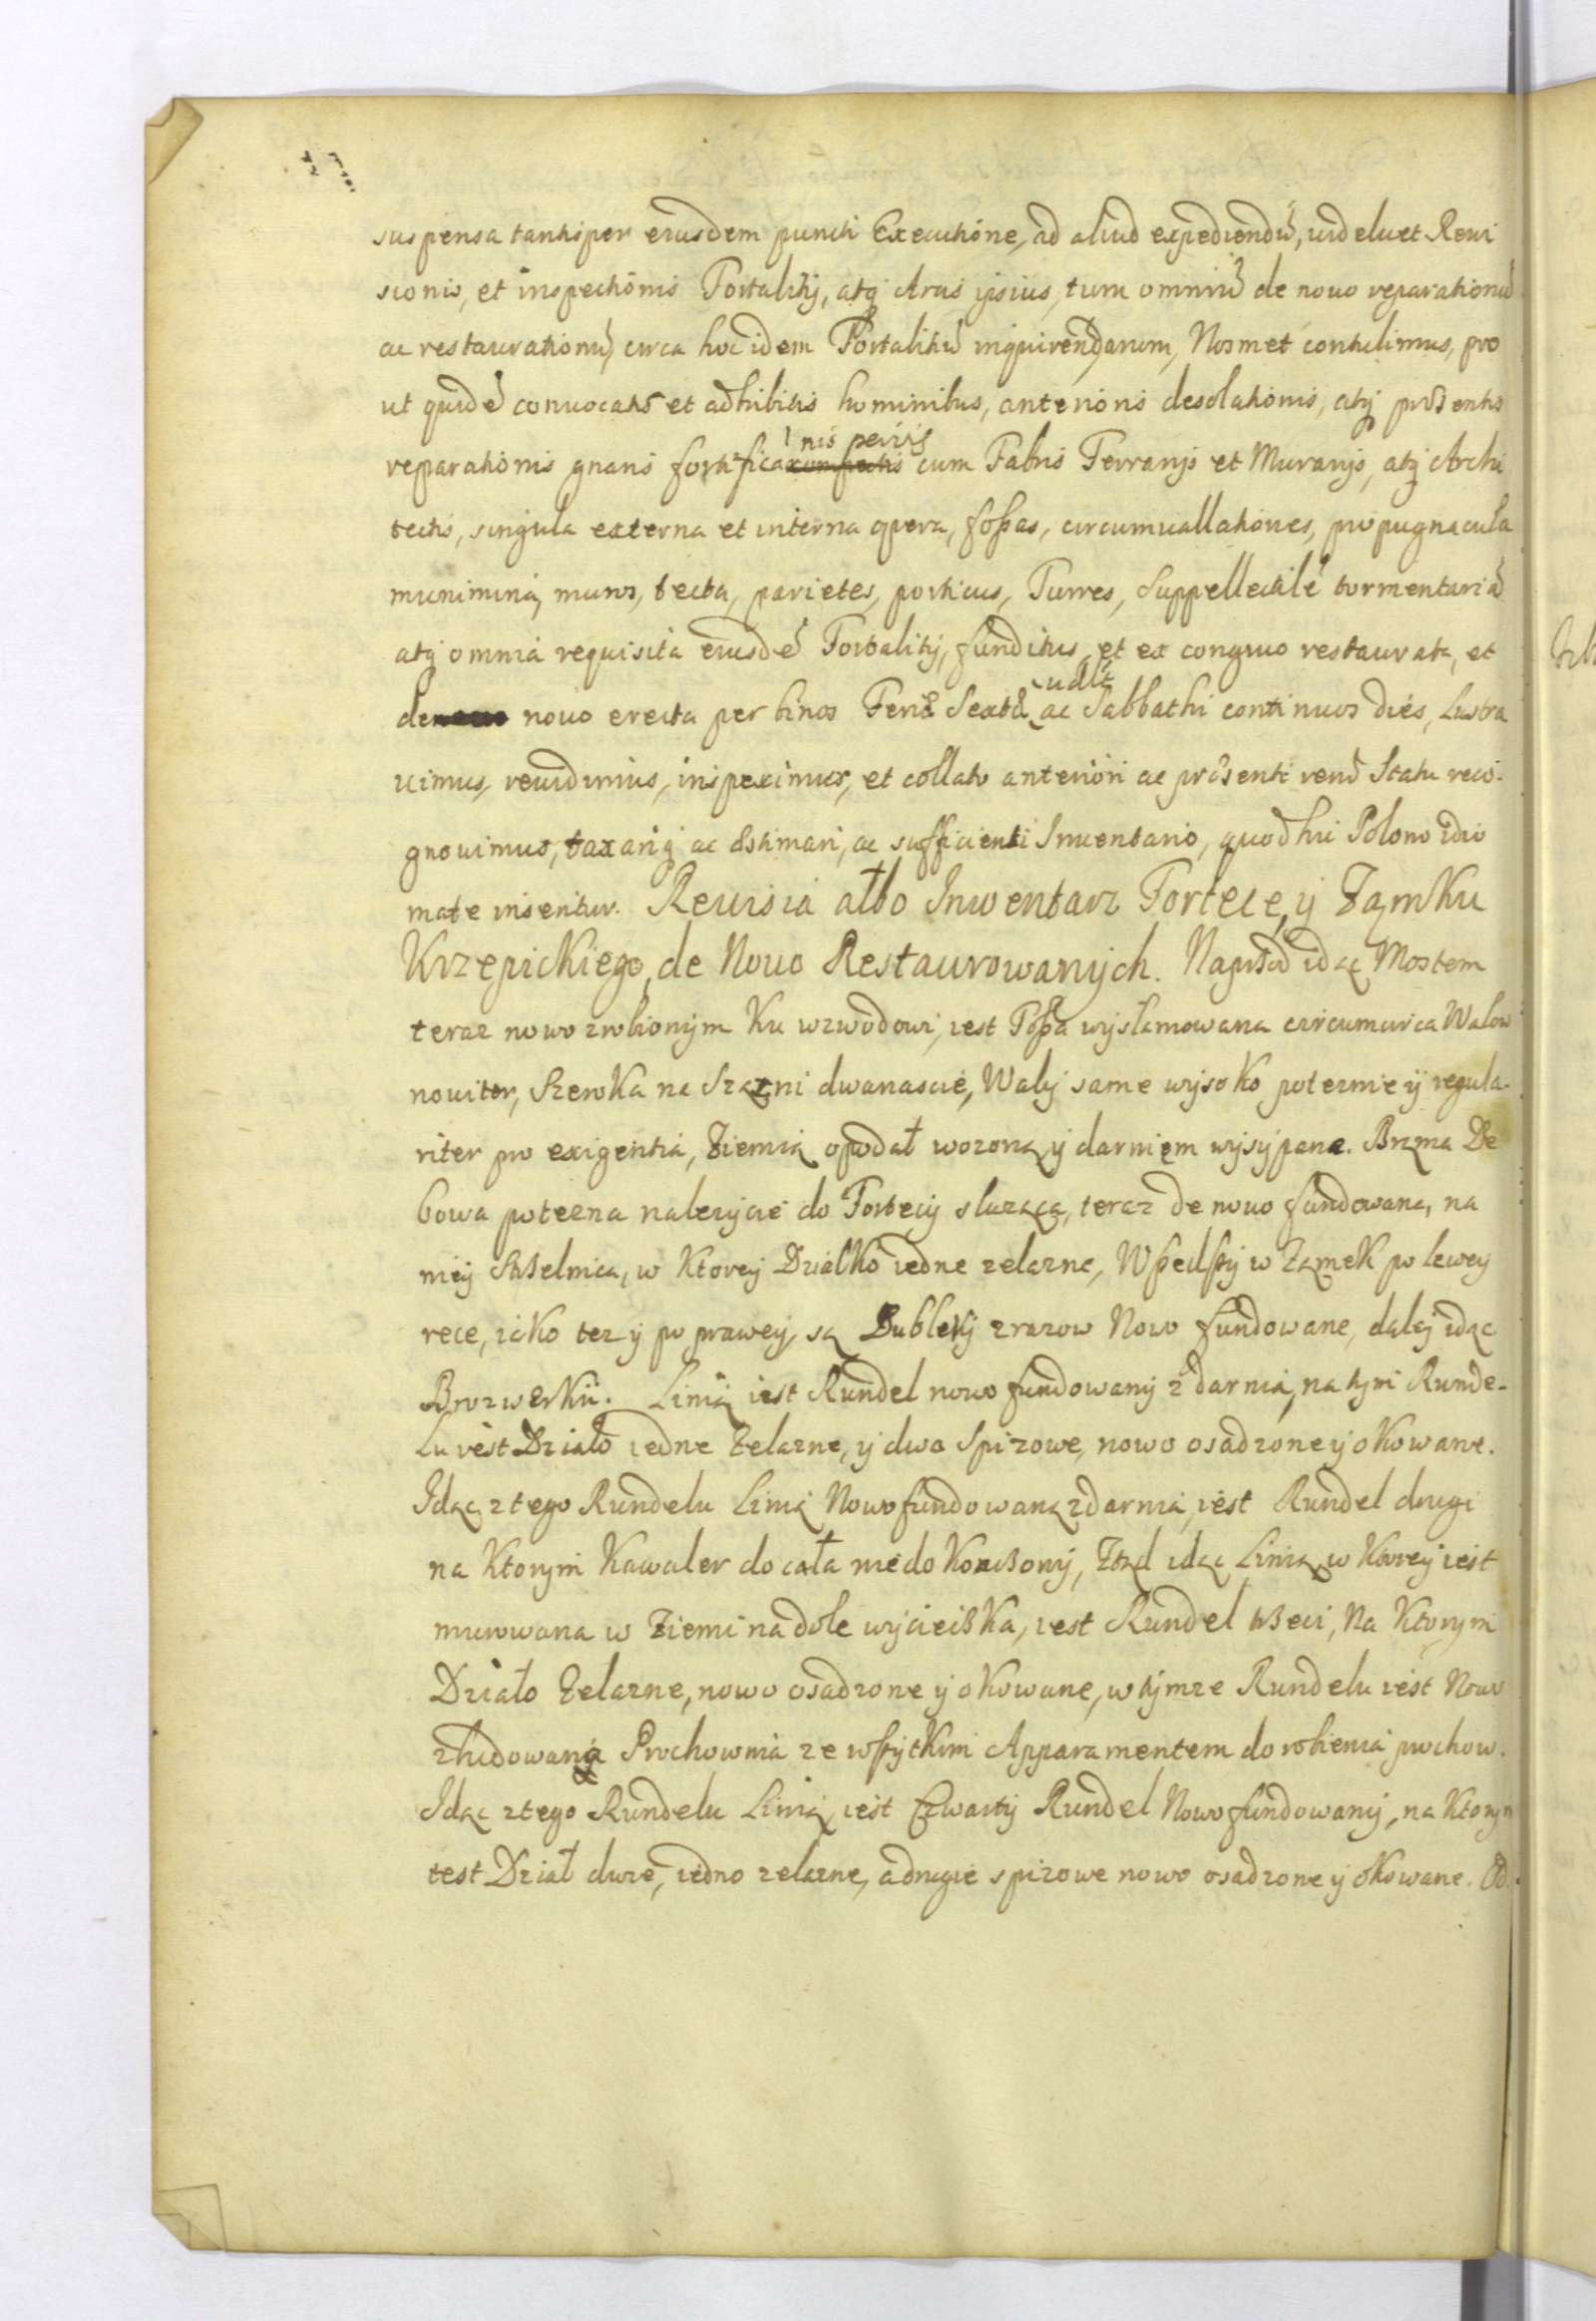 suspensa tantisper eiusdem puncti Executione, ad aliud expediendũ, uidelicet Reui
sionis, et inspectionis Fortalitij, atq Arcis ipsius, tum omniũ de nouo reparationũ
ac restaurationũ, circa hoc idem Fortalitiũ inquirendarum, Nosmet contulimus, pro
ut quidẽ conuocatis et adhibitis hominibus, anterioris desolationis, atq prãsentis
reparationis gnaris fortifica nis peritis cum Fabris Ferrarijs et Murarijs, atq Archi
tectis, singula externa et interna opera, foßas, circumuallationes, propugnacula
munimina, muros, tecta, parietes, porticus, Turres, Suppellectilẽ tormentariã
atq omnia requisita eiusdẽ Fortalitij, funditus, et ex congruo restaurata, et
de nouo erecta per binos Feriã Sextã udlt ac Sabbathi continuos dies, Lustra
uimus, reuidimus, inspeximus, et collato anteriori ac prãsenti rerũ Statu reco-
gnouimus, taxariq ac æstimari, ac sufficienti Inuentario, quod hic Polono idio
mate inseritur. Reuisia albo Inwentarz Fortece, ÿ Zamku
Krzepickiego, de Nouo Restaurowanych. Naprzod idąc Mostem
teraz nowo zrobionym Ku wzwodowi, iest Foßa wyslamowana circumcirca Walow
nouiter, Szeroka na Sazni dwanascie, Waly same wysoko poteznie ÿ regula-
riter pro exigentia, Ziemią opodał wozoną ÿ darniem wysypane. Brama De
bowa potezna nalezycie do Fortecy sluząca, teraz de nouo fundowana, na
nieÿ Stßelnica, w Ktoreÿ Dzialko iedne zelazne, Wßedßy w Zamek po leweÿ
rece, iako tez ÿ po praweÿ, są Dubleky zrazow Nowo fundowane, daleÿ idąc
Brozwerku. Linią iest Rundel nowo fundowany z darnia, na tym Runde-
lu iest Dzialo iedne Zelazne, ÿ dwa Spizowe, nowo osadzone ÿ oKowane.
Idąc z tego Rundelu Linią Nowo fundowaną z darnia, iest Rundel drugi
na Ktorym Kawaler do cała nie doKonßony, Ztąd idąc Linią w Ktoreÿ iest
murowana w Ziemi na dole wycieißka, iest Rundel tßeci, Na Ktorym
Działo Zelazne, nowo osadzone ÿ oKowane, w tymze Rundelu iest Nowo
zbudowana Prochownia ze wßytkim Apparamentem do robienia prochow.
Idąc z tego Rundelu Linią, iest Czwarty Rundel Nowo fundowany, na Ktorym
iest Dział dwie, iedno zelazne, a drugie spizowe nowo osadzone ÿ oKowane. Od